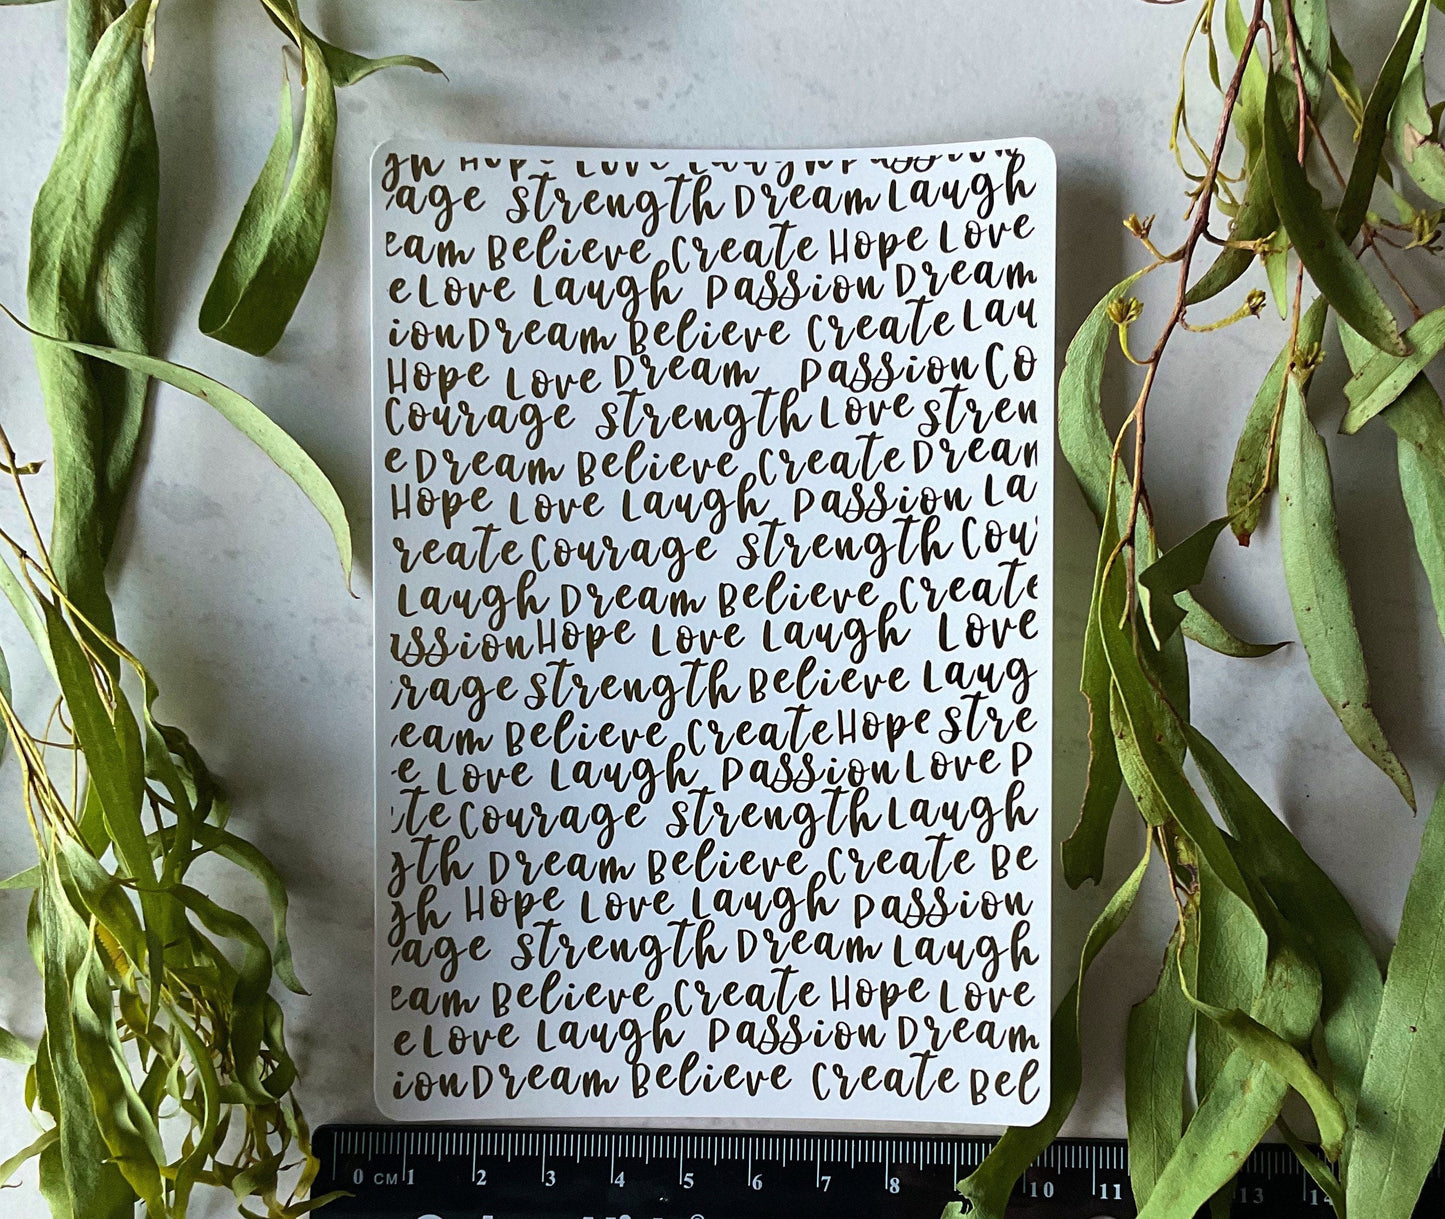 gh Hope Love Laugh Passion
age Strength Dream Laugh
eam Believe Create Hope Love
e Love Laugh Passion Dream
ion Dream Believe Create Lau
Hope Love Dream Passion Co
Courage Strength Love Stren
e Dream Believe Create Dream
Hope Love Laugh Passion La
reate Courage Strength Cou
Laugh Dream Believe Create
assion Hope Love Laugh Love
rage Strength Believe Laug
eam Believe Create Hope Stre
e Love Laugh Passion Love P
te Courage Strength Laugh
gth Dream Believe Create Be
gh Hope Love Laugh Passion
age Strength Dream Laugh
eam Believe Create Hope Love
e Love Laugh Passion Dream
ion Dream Believe Create Bel
0 CM 1 2 3 4 5 6 7 8 10 11 13 14